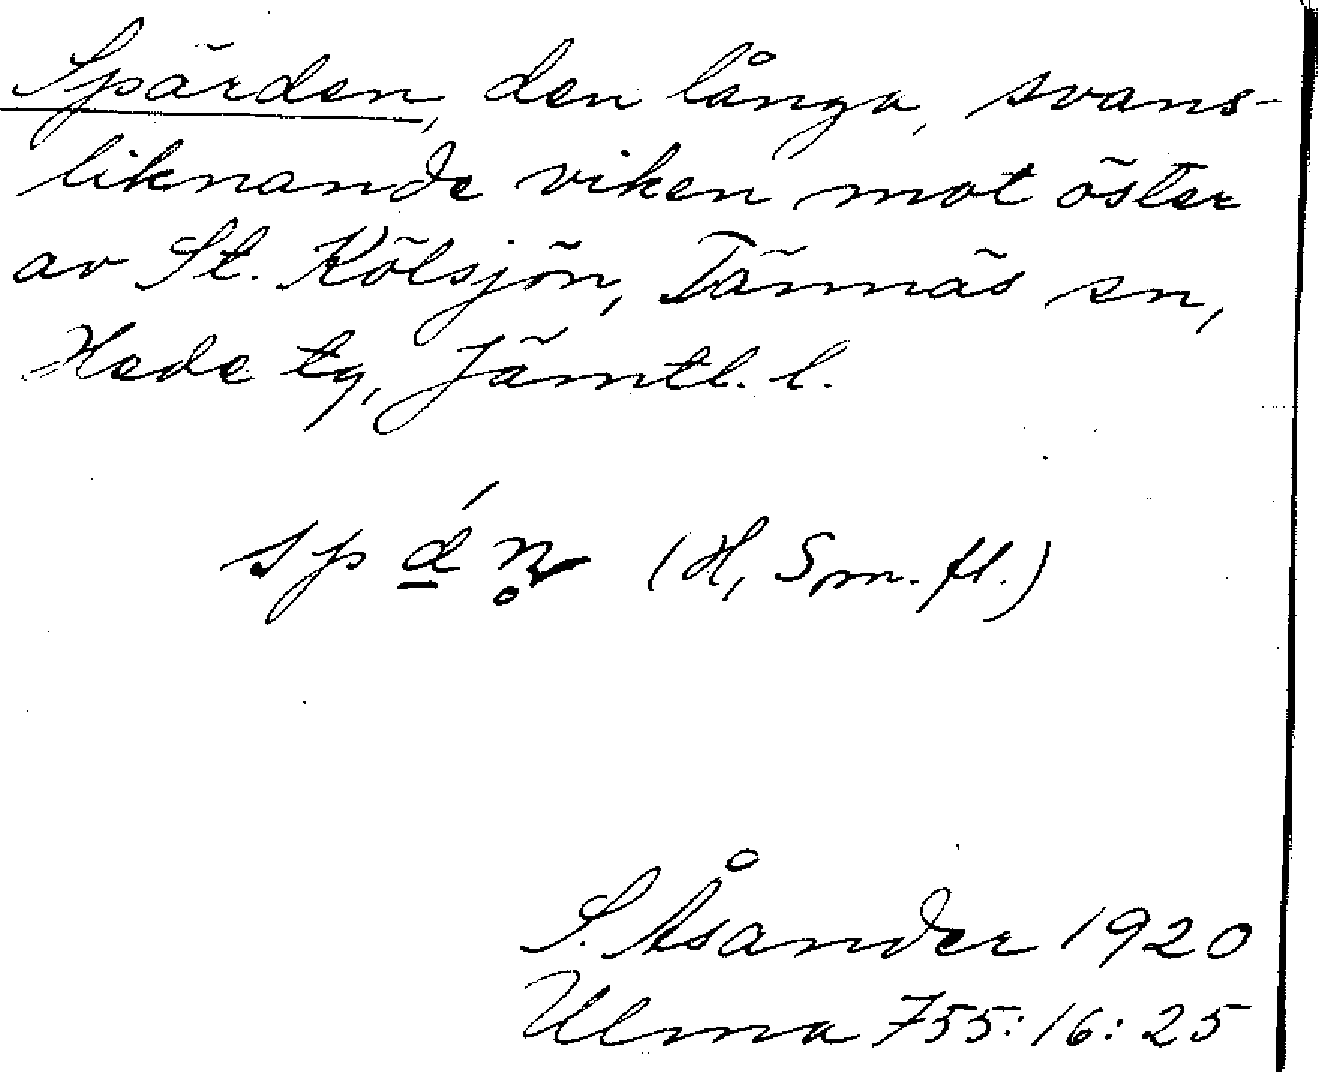 Spärden, den långa, svans-
liknande viken mot öster
av St. Kölsjön, Tännäs sn,
Hede tg, Jämtl. l.
(H, Sm. fl.)
S. Åsander 1920
Ulma 755:16:25